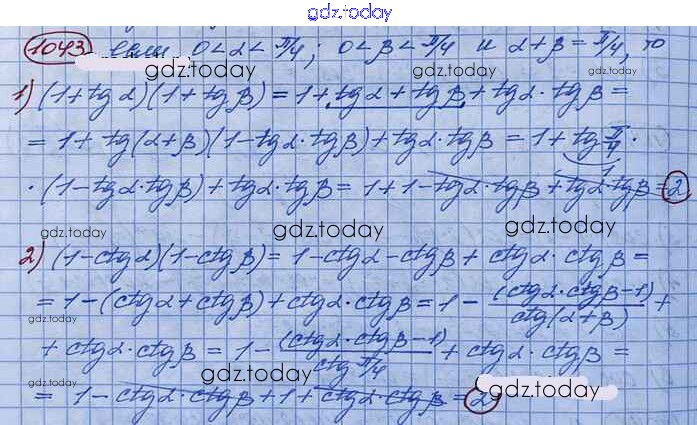 gdz.today
1043 если 0 < α < π/4; 0 < β < π/4 и α + β = π/4, то
gdz.today gdz.today
1) (1 + tg α)(1 + tg β) = 1 + tg α + tg β + tg α · tg β =
= 1 + tg(α + β)(1 - tg α · tg β) + tg α · tg β = 1 + tg π/4 ·
1
· (1 - tg α · tg β) + tg α · tg β = 1 + 1 - tg α · tg β + tg α · tg β = 2
gdz.today gdz.today gdz.today
2) (1 - ctg α)(1 - ctg β) = 1 - ctg α - ctg β + ctg α · ctg β =
= 1 - (ctg α + ctg β) + ctg α · ctg β = 1 - (ctg α · ctg β - 1) / ctg(α + β) +
gdz.today
+ ctg α · ctg β = 1 - (ctg α · ctg β - 1) / ctg π/4 + ctg α · ctg β =
gdz.today gdz.today gdz.today
= 1 - ctg α · ctg β + 1 + ctg α · ctg β = 2